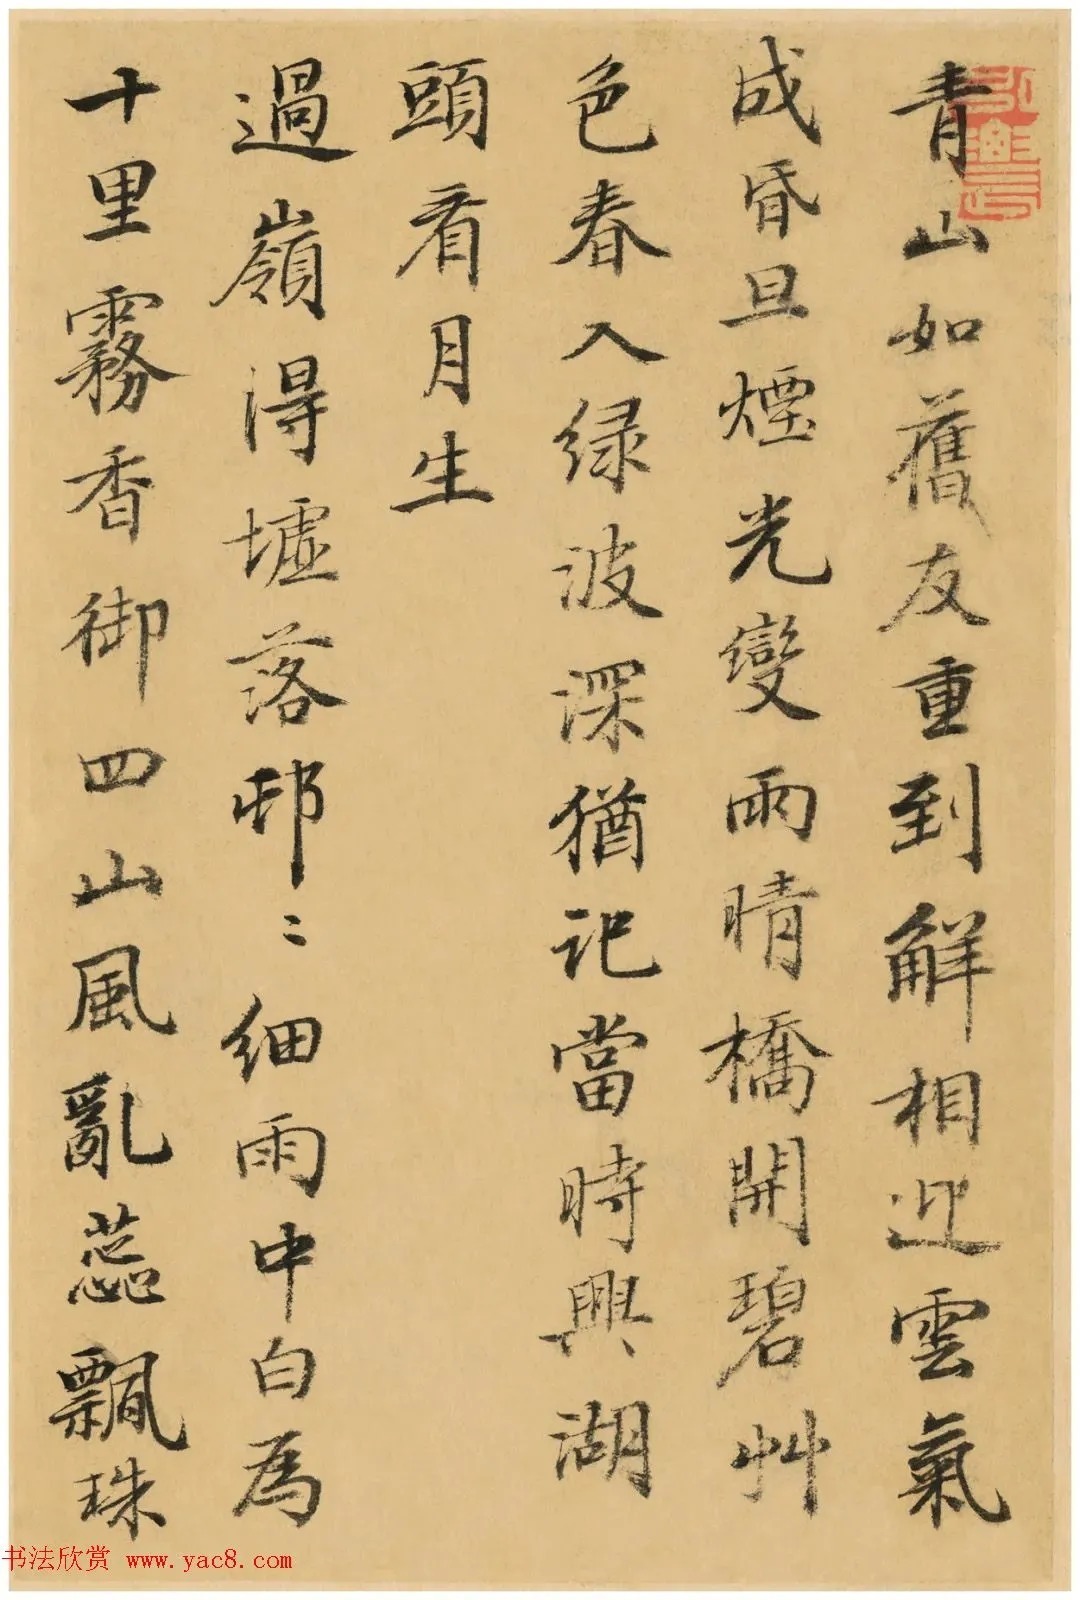 青山如舊友重到解相迎雲氣
成昏旦煙光變雨晴橋開碧艸
色春入绿波深猶記當時興湖
頭看月生
過嶺得墟落邨〻细雨中白為
十里霧香御四山風亂蕊飄珠
书法欣赏 www.yac8.com